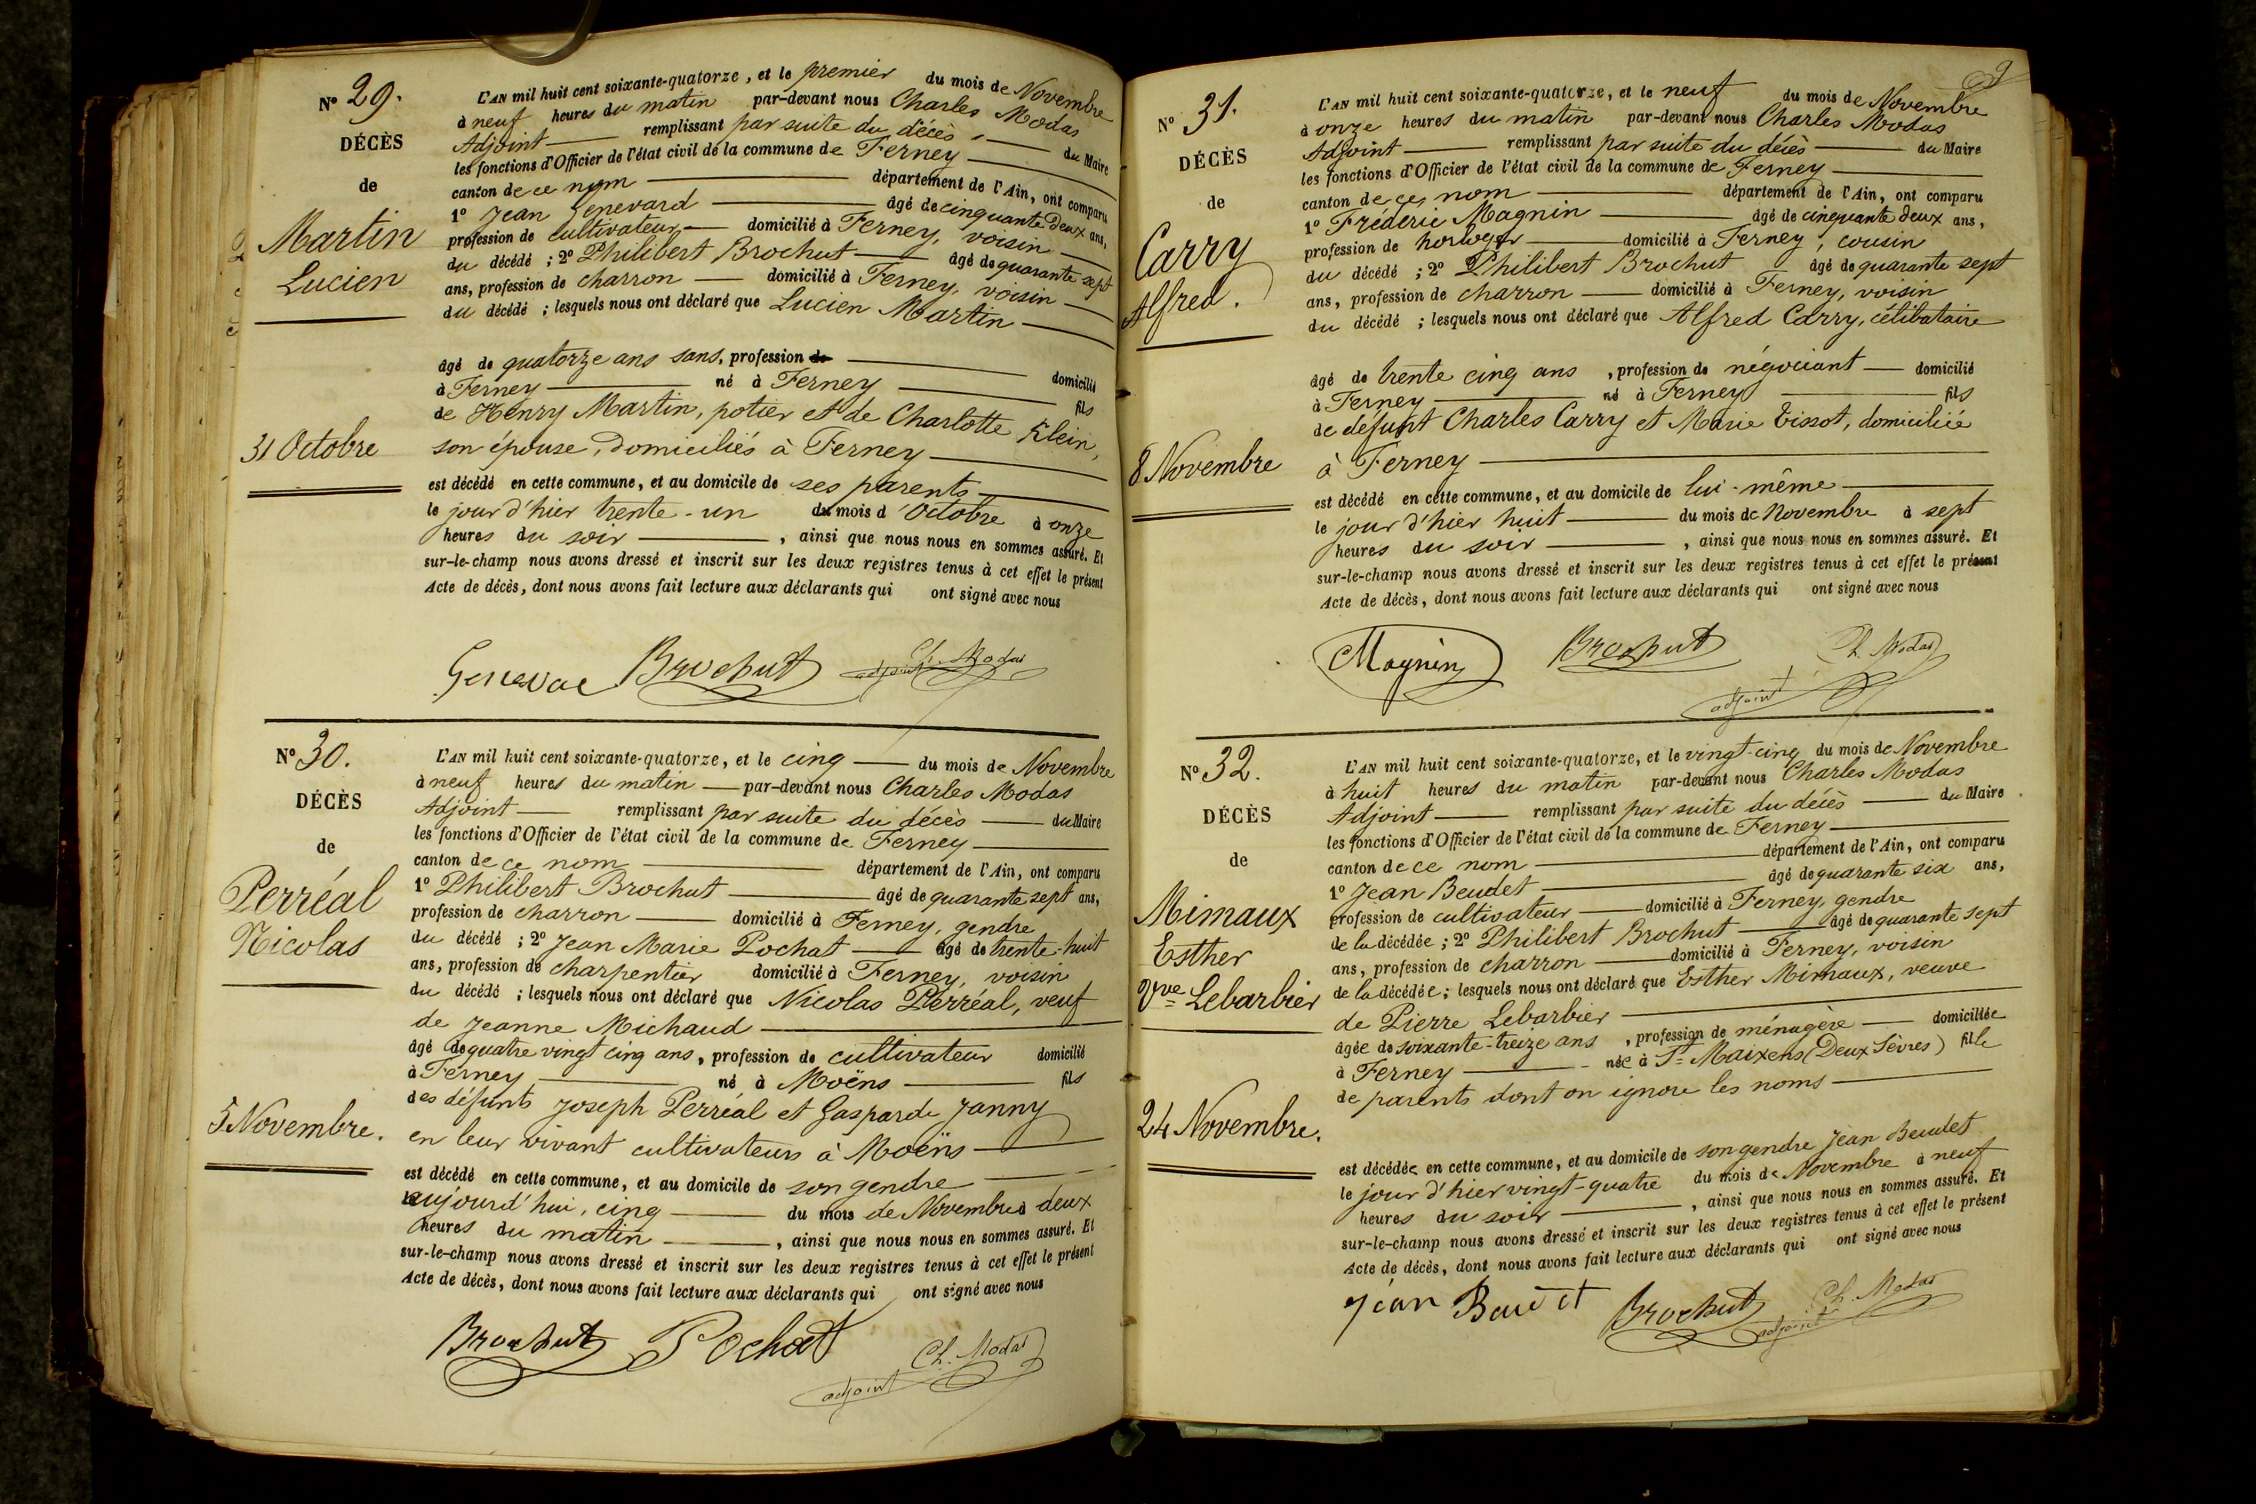 Nº 29.
DÉCÈS
de
Martin
Lucien
31 Octobre
L'AN mil huit cent soixante-quatorze, et le premier du mois de Novembre
à neuf heures du matin par-devant nous Charles Modas
Adjoint remplissant par suite du décès du Maire
les fonctions d'Officier de l'état civil de la commune de Ferney
canton de ce nom département de l'Ain, ont comparu
1º Jean Genevard âgé de cinquante Deux ans,
profession de cultivateur domicilié à Ferney, voisin
du décédé ; 2º Philibert Brochut âgé de quarante sept
ans, profession de charron domicilié à Ferney, voisin
du décédé ; lesquels nous ont déclaré que Lucien Martin
âgé de quatorze ans sans, profession de
domicilié
à Ferney né à Ferney fils
de Henry Martin, potier et de Charlotte Klein,
son épouse, domiciliés à Ferney
est décédé en cette commune, et au domicile de ses parents
le jour d'hier trente-un du mois d'Octobre à onze
heures du soir , ainsi que nous nous en sommes assuré. Et
sur-le-champ nous avons dressé et inscrit sur les deux registres tenus à cet effet le présent
Acte de décès, dont nous avons fait lecture aux déclarants qui ont signé avec nous
Brochut Ch. Modas
adjoint
Nº 30.
DÉCÈS
de
Perréal
Nicolas
5 Novembre.
L'AN mil huit cent soixante-quatorze, et le cinq du mois de Novembre
à neuf heures du matin par-devant nous Charles Modas
Adjoint remplissant par suite du décès du Maire
les fonctions d'Officier de l'état civil de la commune de Ferney
canton de ce nom département de l'Ain, ont comparu
1º Philibert Brochut âgé de quarante sept ans,
profession de charron domicilié à Ferney, gendre
du décédé ; 2º Jean Marie Pochat âgé de trente-huit
ans, profession de charpentier domicilié à Ferney, voisin
du décédé ; lesquels nous ont déclaré que Nicolas Perréal, veuf
de Jeanne Michaud
âgé de quatre vingt cinq ans, profession de cultivateur domicilié
à Ferney né à Moëns fils
des défunts Joseph Perréal et Gasparde Janny
en leur vivant cultivateurs à Moëns
est décédé en cette commune, et au domicile de son gendre
aujourd'hui, cinq du mois de Novembre à deux
heures du matin , ainsi que nous nous en sommes assuré. Et
sur-le-champ nous avons dressé et inscrit sur les deux registres tenus à cet effet le présent
Acte de décès, dont nous avons fait lecture aux déclarants qui ont signé avec nous
Brochut Pochat Ch. Modas
adjoint
9
Nº 31.
DÉCÈS
de
Carry
Alfred.
8 Novembre
L'AN mil huit cent soixante-quatorze, et le neuf du mois de Novembre
à onze heures du matin par-devant nous Charles Modas
Adjoint remplissant par suite du décès du Maire
les fonctions d'Officier de l'état civil de la commune de Ferney
canton de ce nom département de l'Ain, ont comparu
1º Fréderic Magnin âgé de cinquante deux ans,
profession de horloger domicilié à Ferney, cousin
du décédé ; 2º Philibert Brochut âgé de quarante sept
ans, profession de charron domicilié à Ferney, voisin
du décédé ; lesquels nous ont déclaré que Alfred Carry, célibataire
âgé de trente cinq ans , profession de négociant domicilié
à Ferney né à Ferney fils
de défunt Charles Carry et Marie Tissot, domiciliée
à Ferney
est décédé en cette commune, et au domicile de lui-même
le jour d'hier huit du mois de Novembre à sept
heures du soir , ainsi que nous nous en sommes assuré. Et
sur-le-champ nous avons dressé et inscrit sur les deux registres tenus à cet effet le présent
Acte de décès, dont nous avons fait lecture aux déclarants qui ont signé avec nous
Magnin Brochut Ch. Modas
adjoint
Nº 32.
DÉCÈS
de
Mimaux
Esther
Vve Lebarbier
24 Novembre.
L'AN mil huit cent soixante-quatorze, et le vingt-cinq du mois de Novembre
à huit heures du matin par-devant nous Charles Modas
Adjoint remplissant par suite du décès du Maire
les fonctions d'Officier de l'état civil de la commune de Ferney
canton de ce nom département de l'Ain, ont comparu
1º Jean Beudet âgé de quarante six ans,
profession de cultivateur domicilié à Ferney, gendre
de la décédée ; 2º Philibert Brochut âgé de quarante sept
ans, profession de charron domicilié à Ferney, voisin
de la décédée ; lesquels nous ont déclaré que Esther Mimaux, veuve
de Pierre Lebarbier
âgée de soixante-treize ans , profession de ménagère domiciliée
à Ferney née à St Maixens (Deux Sèvres) fille
de parents dont on ignore les noms
est décédée en cette commune, et au domicile de son gendre Jean Beudet
le jour d'hier vingt-quatre du mois de Novembre à neuf
heures du soir , ainsi que nous nous en sommes assuré. Et
sur-le-champ nous avons dressé et inscrit sur les deux registres tenus à cet effet le présent
Acte de décès, dont nous avons fait lecture aux déclarants qui ont signé avec nous
Jean Beudet Brochut Ch. Modas
adjoint